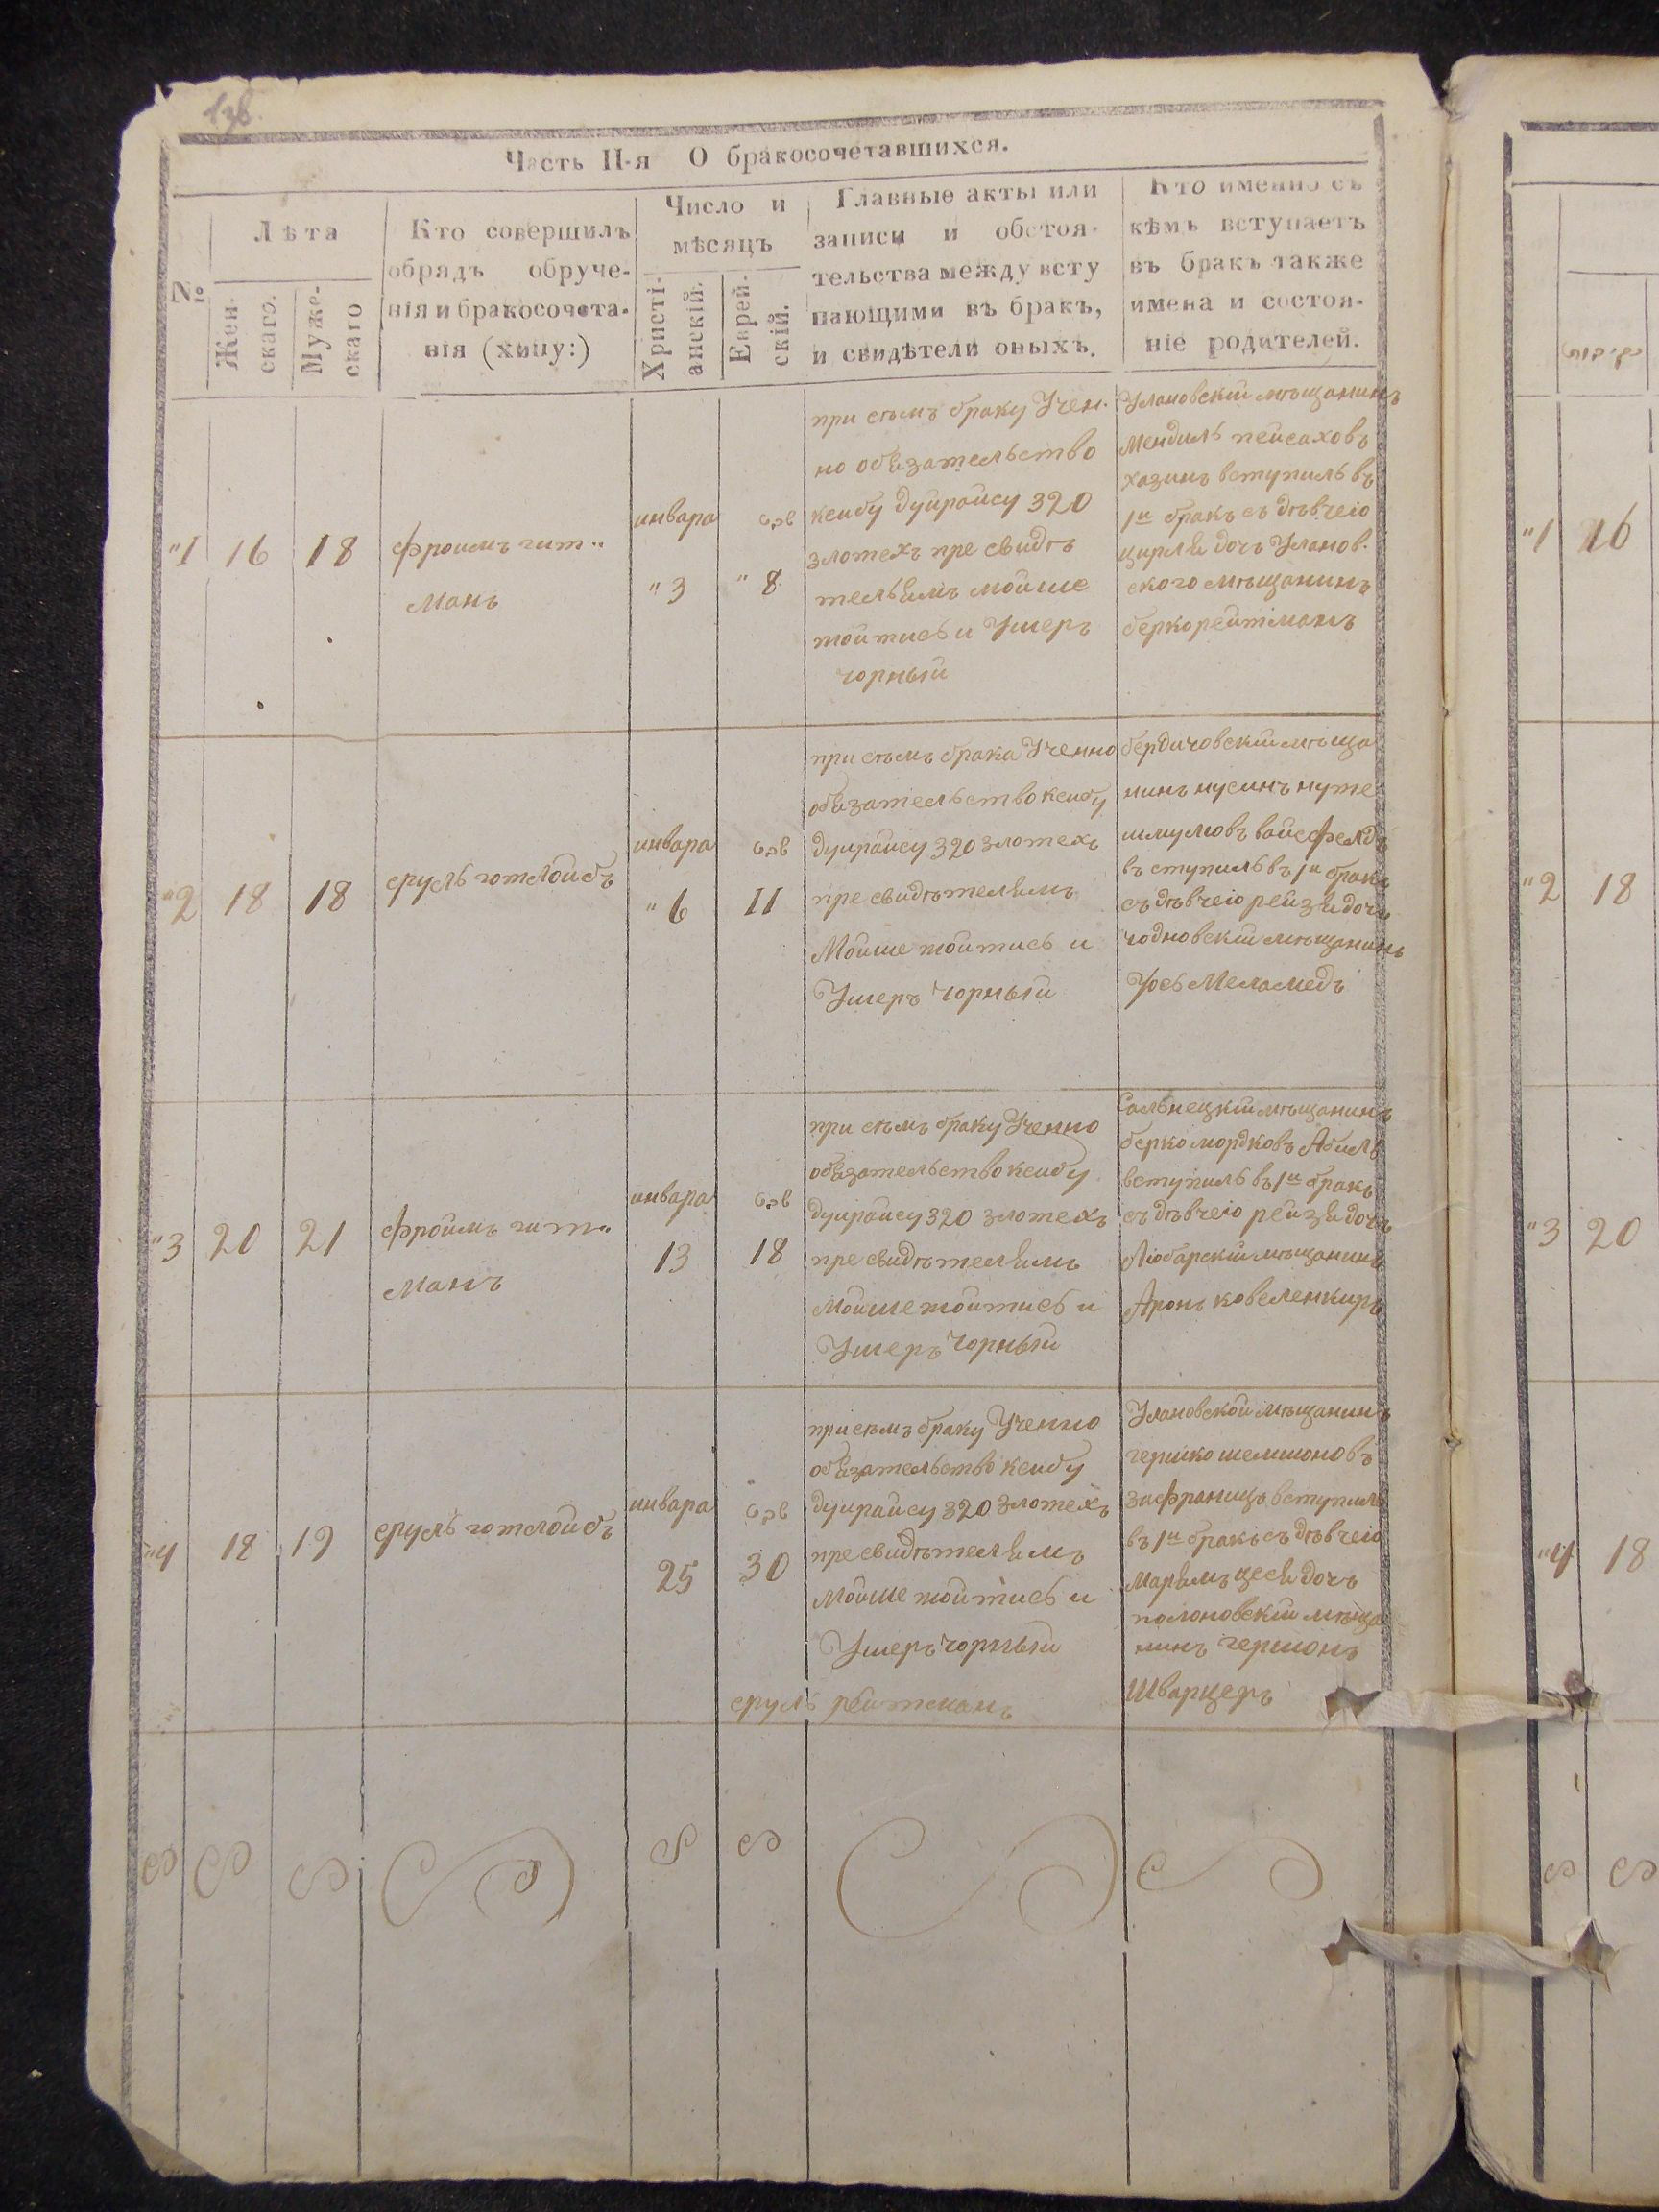 138.
Часть II-я О бракосочетавшихся.
№
Лѣта
Жен-
скаго.
Муже-
скаго
Кто совершилъ
обрядъ обруче-
нія и бракосочета-
нія (хипу:)
Число и
мѣсяцъ
Христі-
анскій.
Еврей-
скій.
Главные акты или
записи и обстоя-
тельства между всту
пающими въ бракъ,
и свидѣтели оныхъ.
Кто именно съ
кѣмъ вступаетъ
въ бракъ также
имена и состоя-
ніе родителей.
"1
16
18
фроимъ гит-
манъ
января
"3
"8
при семъ браку Учен-
но обязательство
ксибу дуирайсу 320
злотехъ пре свидѣ
тельямъ мойше
тойтись и Ушеръ
чорный
Улановскій мѣщанинъ
мендиль пейсаховъ
хазинъ вступилъ въ
1й бракъ съ дѣвчею
цирля дочъ Уланов-
ского мѣщанинъ
берко рейтманъ
"2
18
18
сруль готлойбъ
января
"6
11
при семъ брака Ученно
обязательство ксибу
дуирайсу 320 злотехъ
пре свидѣтелямъ
Мойше тойтись и
Ушеръ чорный
бердичовскій мѣща
нинъ нусинъ нуте
шмулювъ вайсфелдъ
въступилъ въ 1й бракъ
съ дѣвчею рейзя дочъ
чодновскій мѣщанинъ
Уось Меламедъ
"3
20
21
фроимъ гит-
манъ
января
13
18
при семъ браку Ученно
обязательство ксибу
дуирайсу 320 злотехъ
пре свидѣтелямъ
мойше тойтись и
Ушеръ чорный
Сальнецкій мѣщанинъ
берко мордковъ Абиль
вступилъ въ 1й бракъ
съ дѣвчею рейзя дочъ
Любарскій мѣщанинъ
Аронъ ковеленкиръ
"4
18
19
сруль готлойбъ
января
25
30
при семъ браку Ученно
обязательство ксибу
дуирайсу 320 злотехъ
пре свидѣтелямъ
Мойше тойтись и
Ушеръ чорный
сруль рейтманъ
Улановской мѣщанинъ
гершко шемшоновъ
зафраницъ вступилъ
въ 1й бракъ съ дѣвчею
Марямъ цеся дочъ
полоновскій мѣща
нинъ гершонъ
Шварцеръ
"1
16
"2
18
"3
20
"4
18